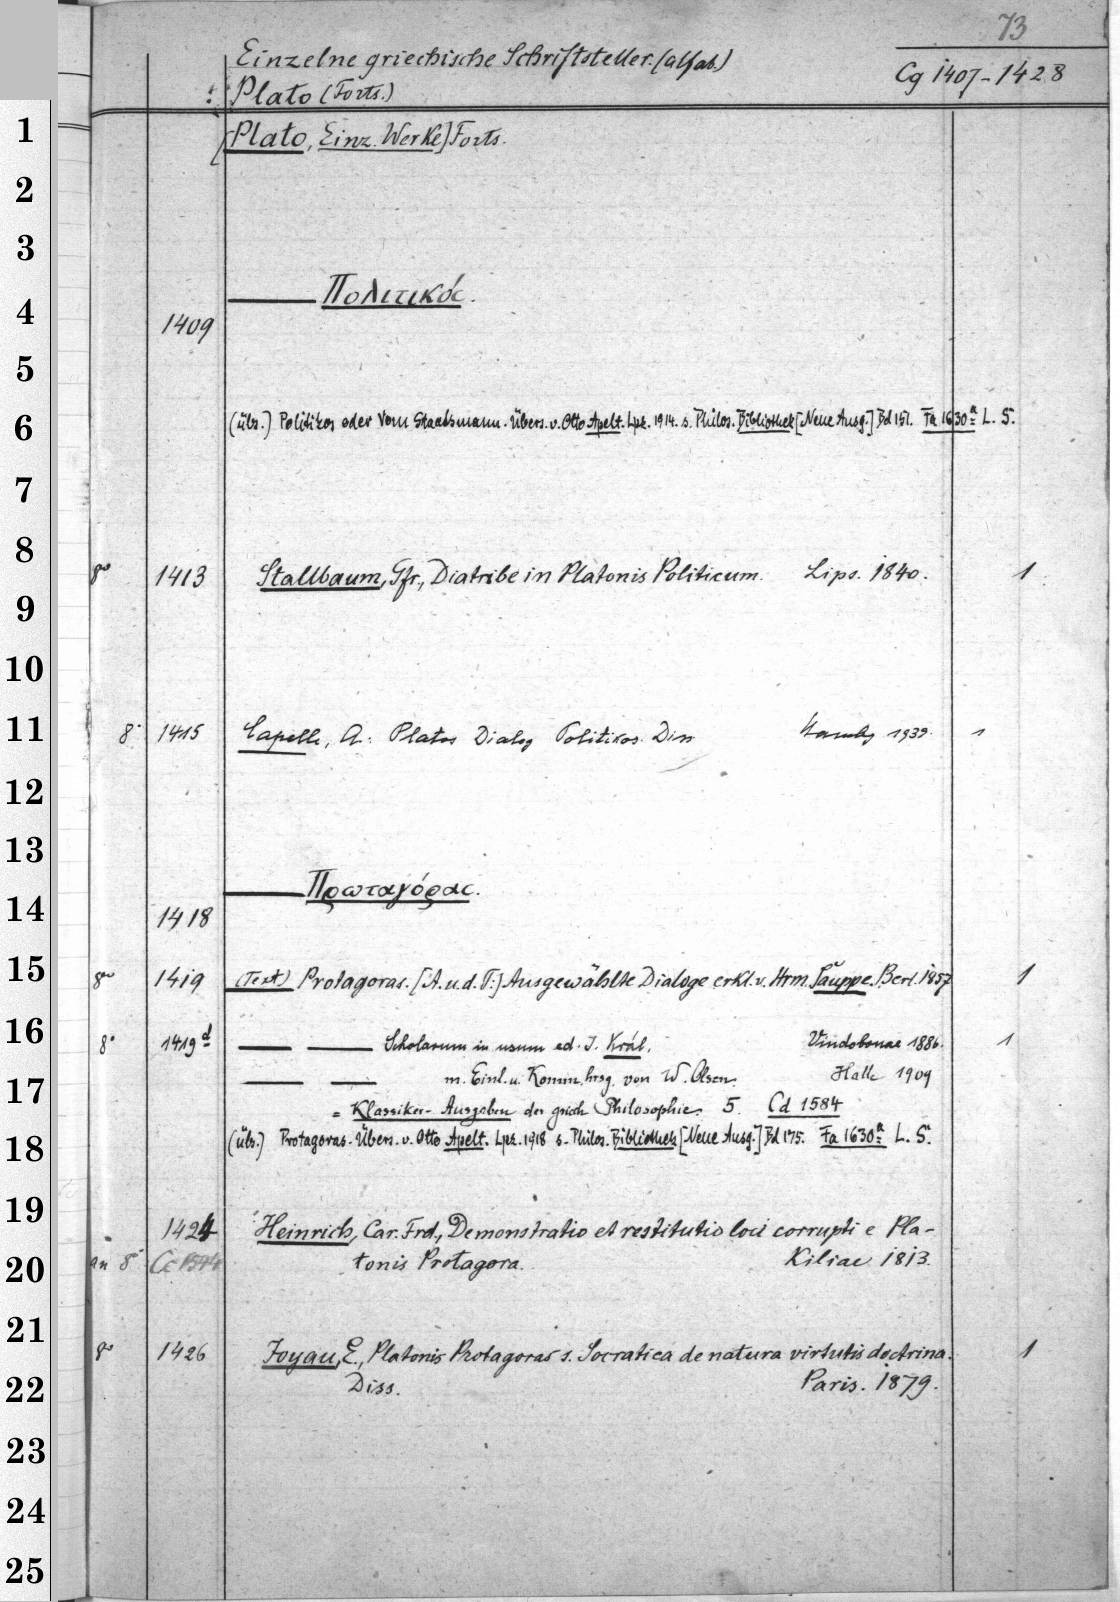 73
Einzelne griechische Schriftsteller. (alfab.)
Cg 1407-1428
: Plato (Forts.)
1
[Plato, Einz. Werke] Forts.
2
3
Πολιτικός.
4
1409
5
6
(übs.) Politikos oder Vom Staatsmann. Übers. v. Otto Apelt. Lpz. 1914. s. Philos. Bibliothek [Neue Ausg.] Bd 151. Fa 1630a L. S.
7
8
8o 1413 Stallbaum, Gfr., Diatribe in Platonis Politicum. Lips. 1840. 1
9
10
11
8° 1415 Capelle, A.: Platos Dialog Politikos. Diss. Hamburg 1939. 1
12
13
Πρωταγόρας.
14
1418
15
8vo 1419 (Text) Protagoras. [A. u. d. T:] Ausgewählte Dialoge erkl. v. Hrm. Sauppe. Berl. 1857 1
16
8° 1419d — — Scholarum in usum ed. J. Král. Vindobonae 1886. 1
17
— — m. Einl. u. Komm. hrsg. von W. Olsen. Halle 1909
= Klassiker-Ausgaben der griech. Philosophie. 5. Cd 1584
18
(übs.) Protagoras. Übers. v. Otto Apelt. Lpz. 1918 s. Philos. Bibliothek [Neue Ausg.] Bd 175. Fa 1630a L. S.
19
1424 Heinrich, Car. Frd., Demonstratio et restitutio loci corrupti e Pla-
20
an 8° tonis Protagora. Kiliae 1813.
21
8o 1426 Joyau, E., Platonis Protagoras s. Socratica de natura virtutis doctrina. 1
22
Diss. Paris. 1879.
23
24
25